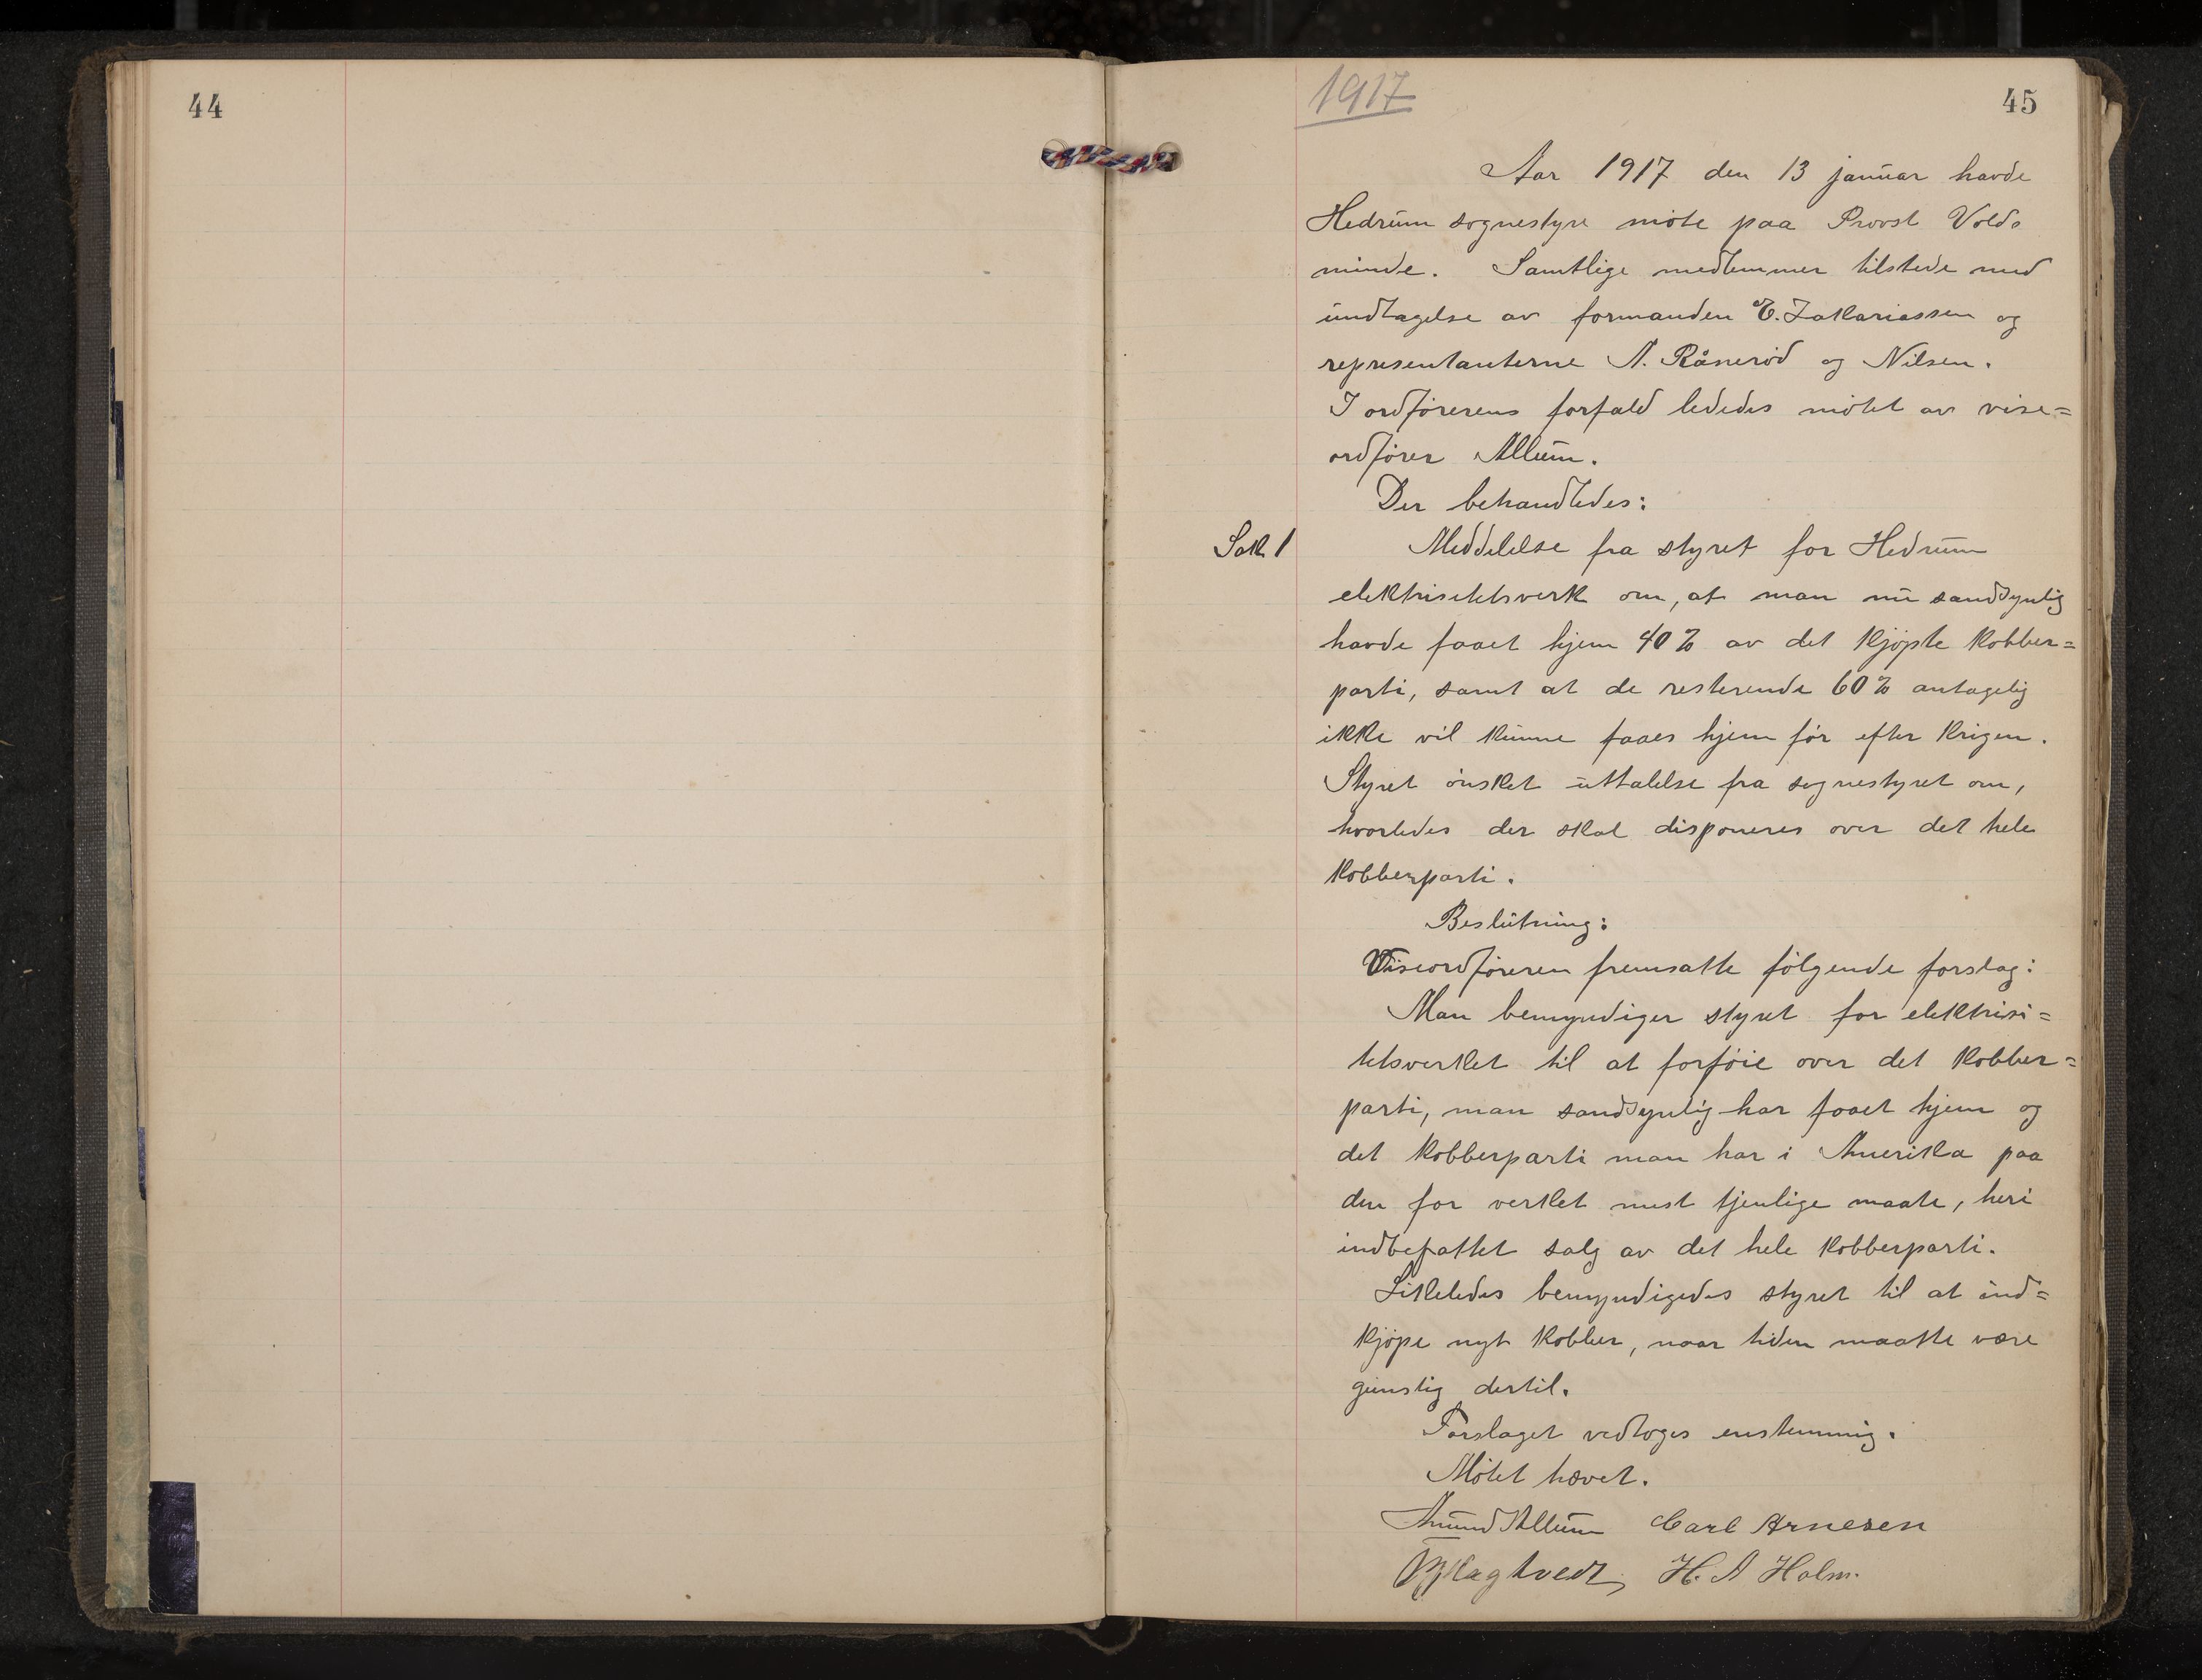 44
1917
45
Aar 1917 den 13 januar havde
Hedrum sognestyre møte paa Provst Volds
minde. Samtlige medlemmer tilstede med
undtagelse av formanden E. Zakariassen og
representanterne A. Rånerød og Nilsen.
I ordførerens forfald lededes møtet av vise=
ordfører Allum.
Der behandledes:
Sak 1
Meddelelse fra styret for Hedrum
elektrisitetsverk om, at man nu sandsynlig
havde faaet hjem 40% av det kjøpte kobber=
parti, samt at de resterende 60% antagelig
ikke vil kunne faaes hjem før efter krigen.
Styret ønsket uttalelse fra sognestyret om,
hvorledes der skal disponeres over det hele
kobberparti.
Beslutning:
Viseordføreren fremsatte følgende forslag:
Man bemyndiger styret for elektrisi=
tetsverket til at forføie over det kobber=
parti, man sandsynlig har faaet hjem og
det kobberparti man har i Amerika paa
den for verket mest tjenlige maate, heri
indbefattet salg av det hele kobberparti.
Likeledes bemyndigedes styret til at ind=
kjøpe nyt kobber, naar tiden maatte være
gunstig dertil.
Forslaget vedtoges enstemmig.
Møtet hævet.
Amund Allum Carl Arnesen
H. A Holm.